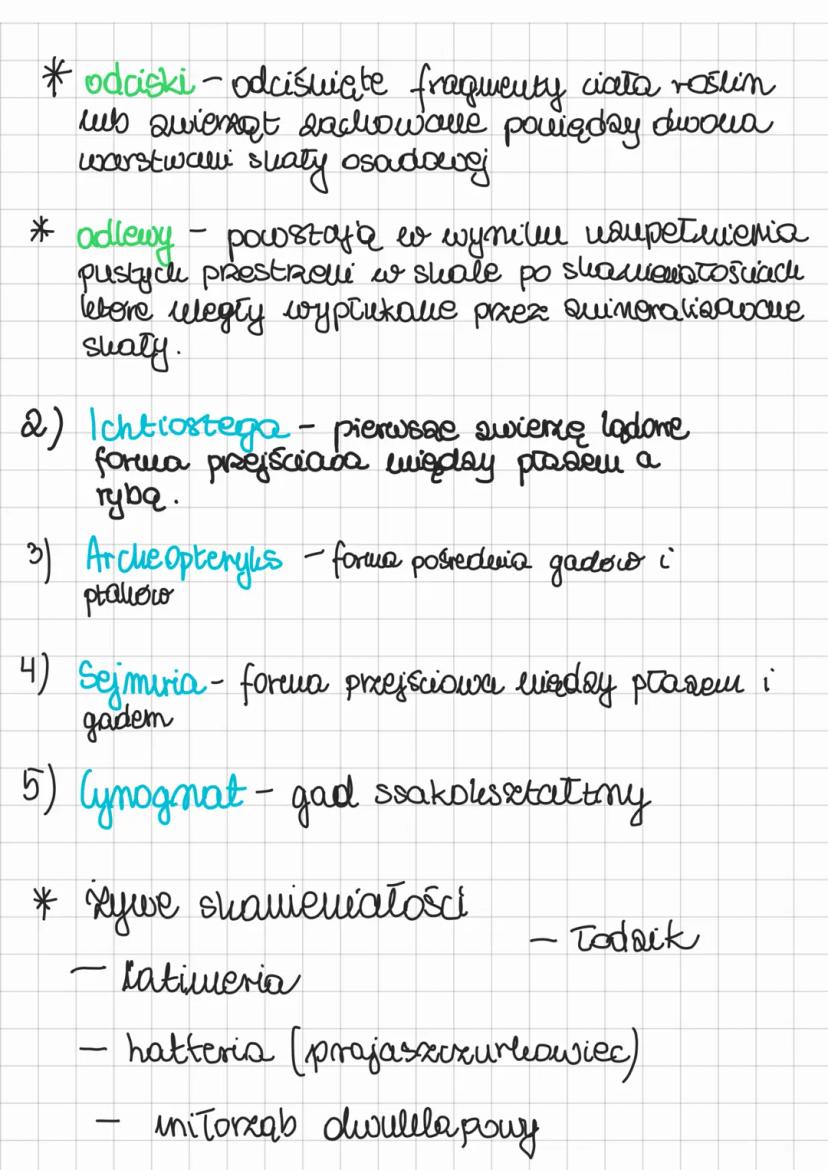 * odciski - odciśnięte fragmenty ciała roślin
lub zwierząt zachowane pomiędzy dwoma
warstwami skały osadowej
* odlewy - powstają w wyniku uzupełnienia
pustych przestrzeni w skale po skamieniałościach
które uległy wypłukane przez zmineralizowane
skały.
2) Ichtiostega - pierwsze zwierzę lądowe
forma przejściowa między płazem a
rybą.
3) Archeopteryks - forma pośrednia gadów i
ptaków
4) Sejmuria - forma przejściowa między płazem i
gadem
5) Cynognat - gad ssakokształtny
* żywe skamieniałości
- Łodzik
- Latimeria
- hatteria (prajaszczurkowiec)
- miłorząb dwuklapowy